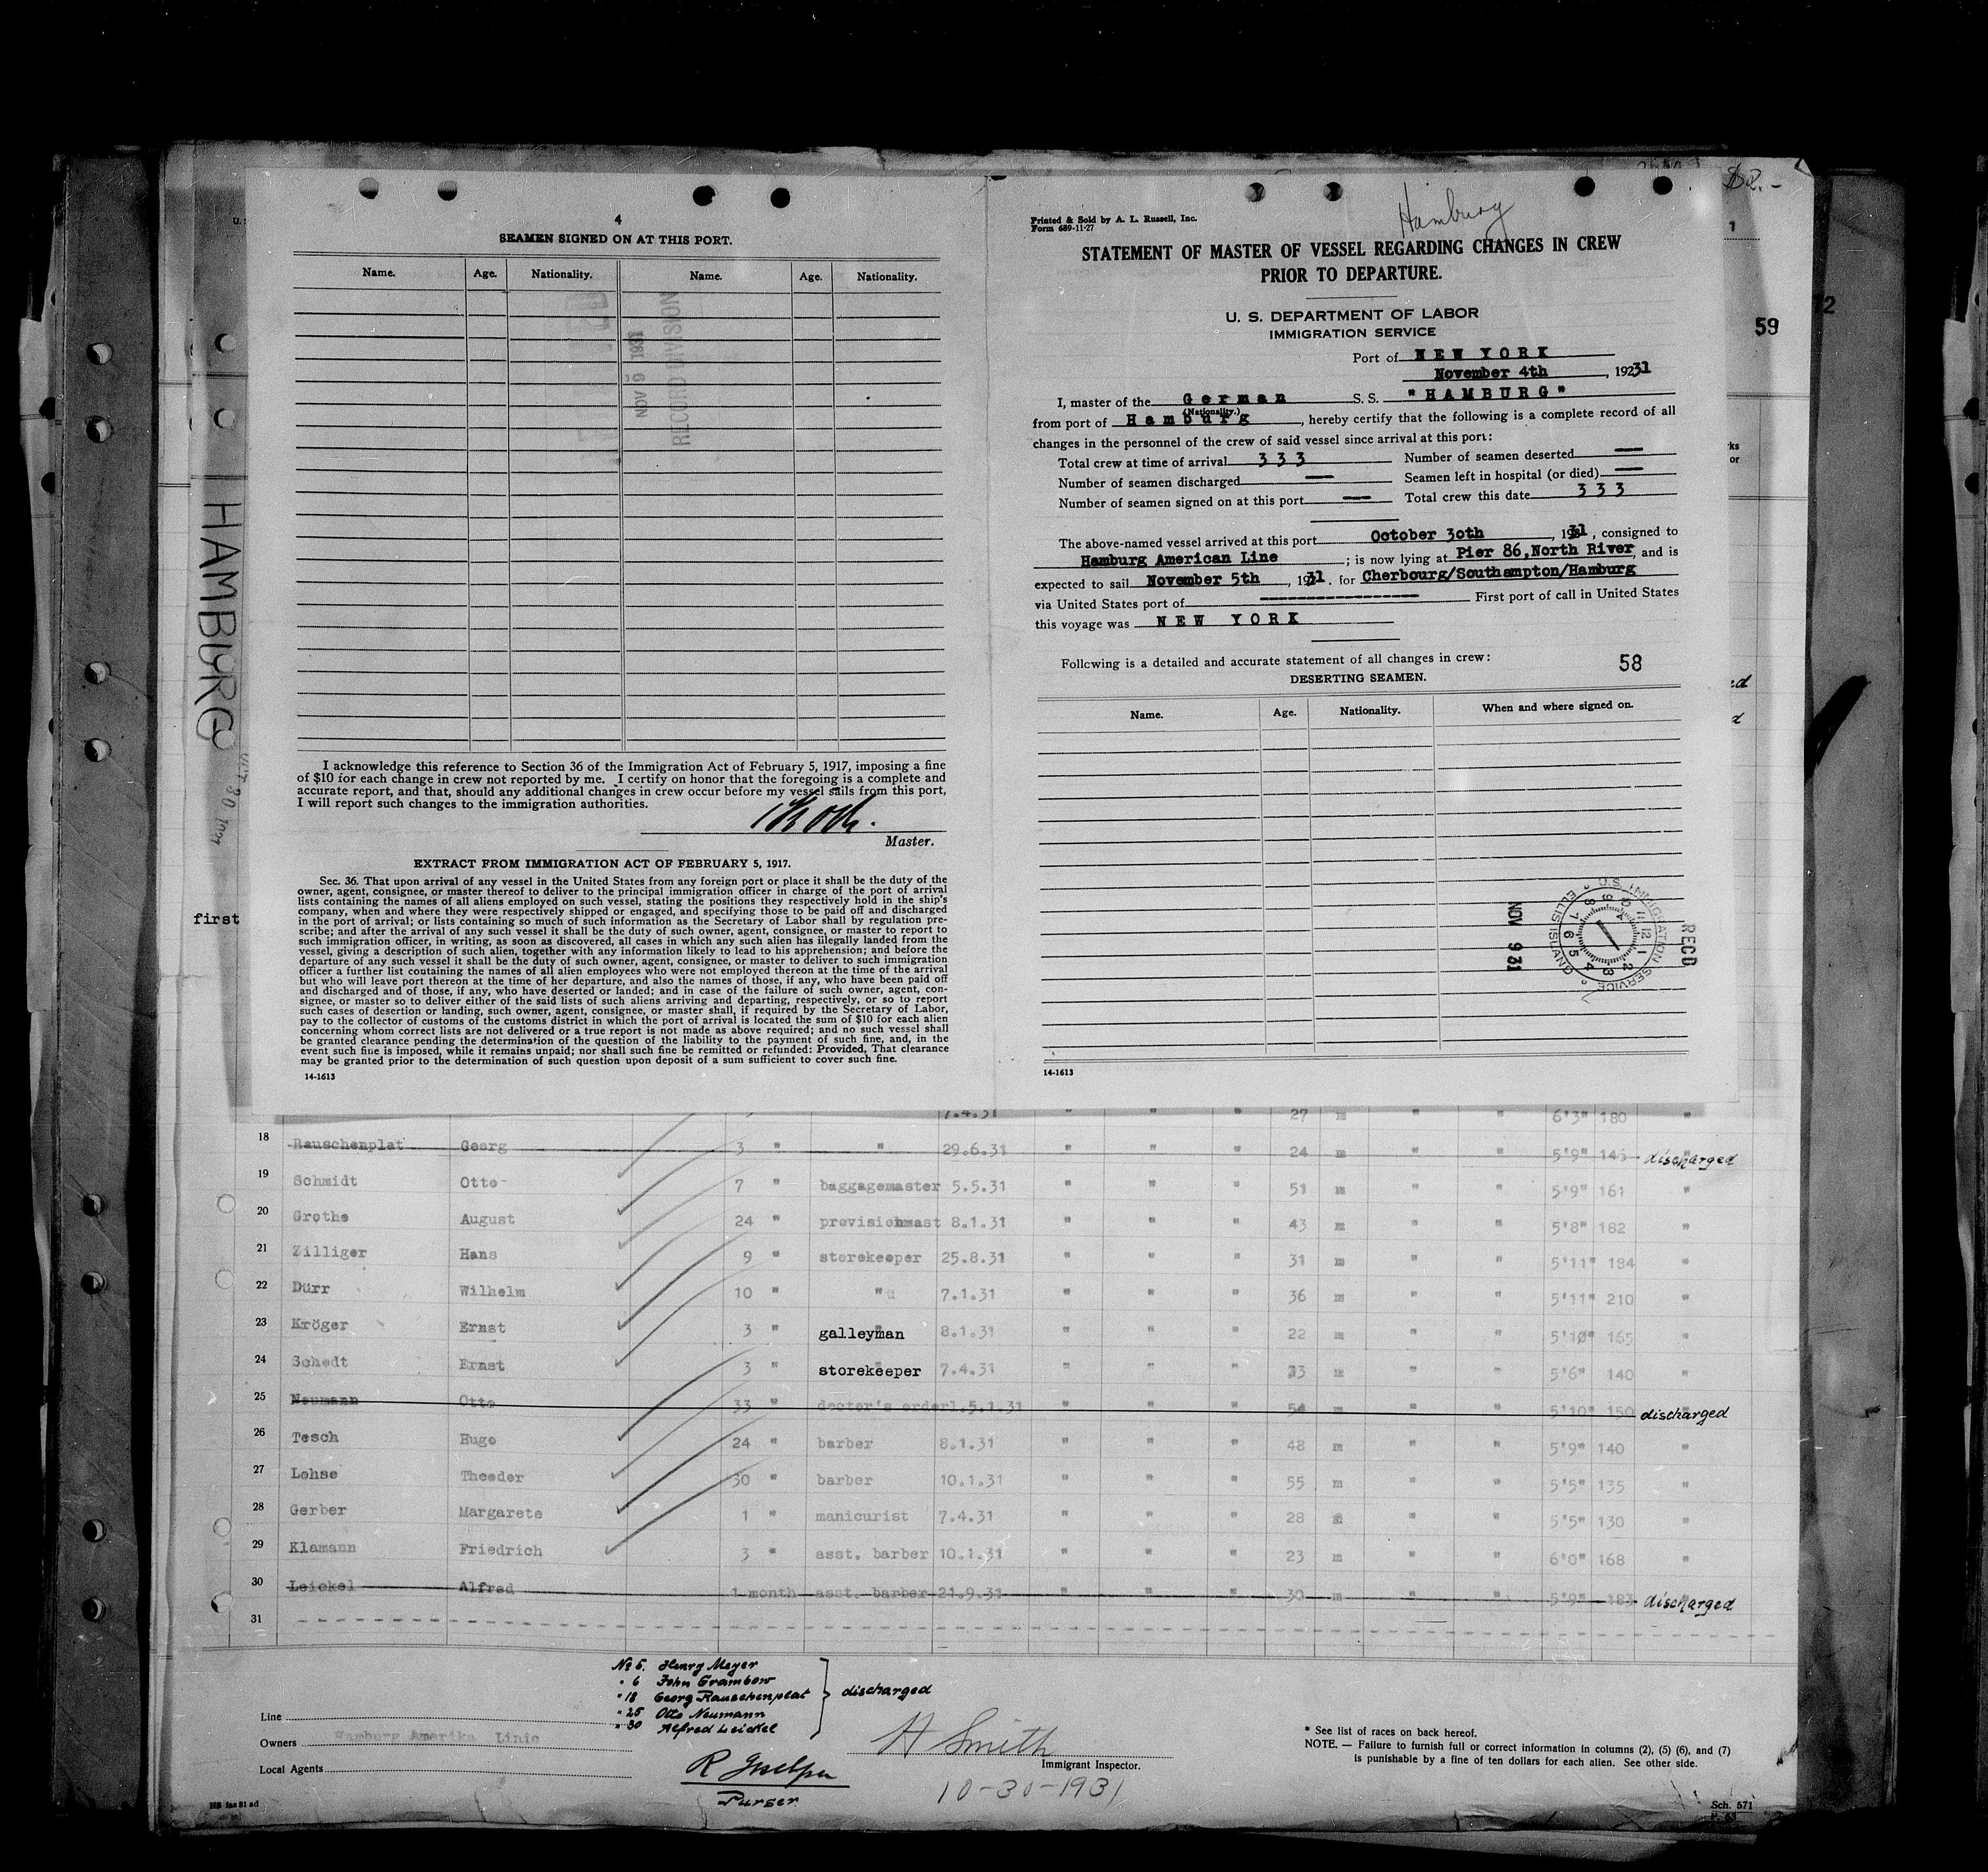 4
SEAMEN SIGNED ON AT THIS PORT.
Name. Age. Nationality. Name. Age. Nationality.
NOV 9 1931
RECORD DIVISION
I acknowledge this reference to Section 36 of the Immigration Act of February 5, 1917, imposing a fine
of $10 for each change in crew not reported by me. I certify on honor that the foregoing is a complete and
accurate report, and that, should any additional changes in crew occur before my vessel sails from this port,
I will report such changes to the immigration authorities.
Master.
EXTRACT FROM IMMIGRATION ACT OF FEBRUARY 5, 1917.
Sec. 36. That upon arrival of any vessel in the United States from any foreign port or place it shall be the duty of the
owner, agent, consignee, or master thereof to deliver to the principal immigration officer in charge of the port of arrival
lists containing the names of all aliens employed on such vessel, stating the positions they respectively hold in the ship's
company, when and where they were respectively shipped or engaged, and specifying those to be paid off and discharged
in the port of arrival; or lists containing so much of such information as the Secretary of Labor shall by regulation pre-
scribe; and after the arrival of any such vessel it shall be the duty of such owner, agent, consignee, or master to report to
such immigration officer, in writing, as soon as discovered, all cases in which any such alien has illegally landed from the
vessel, giving a description of such alien, together with any information likely to lead to his apprehension; and before the
departure of any such vessel it shall be the duty of such owner, agent, consignee, or master to deliver to such immigration
officer a further list containing the names of all alien employees who were not employed thereon at the time of the arrival
but who will leave port thereon at the time of her departure, and also the names of those, if any, who have been paid off
and discharged and of those, if any, who have deserted or landed; and in case of the failure of such owner, agent, con-
signee, or master so to deliver either of the said lists of such aliens arriving and departing, respectively, or so to report
such cases of desertion or landing, such owner, agent, consignee, or master shall, if required by the Secretary of Labor,
pay to the collector of customs of the customs district in which the port of arrival is located the sum of $10 for each alien
concerning whom correct lists are not delivered or a true report is not made as above required; and no such vessel shall
be granted clearance pending the determination of the question of the liability to the payment of such fine, and, in the
event such fine is imposed, while it remains unpaid; nor shall such fine be remitted or refunded: Provided, That clearance
may be granted prior to the determination of such question upon deposit of a sum sufficient to cover such fine.
14-1613
Printed & Sold by A. L. Russell, Inc.
Form 689-11-27
Hamburg
STATEMENT OF MASTER OF VESSEL REGARDING CHANGES IN CREW
PRIOR TO DEPARTURE.
U. S. DEPARTMENT OF LABOR
IMMIGRATION SERVICE
Port of NEW YORK
November 4th, 19231
I, master of the German S. S. "HAMBURG"
(Nationality.)
from port of Hamburg, hereby certify that the following is a complete record of all
changes in the personnel of the crew of said vessel since arrival at this port:
Total crew at time of arrival 333 Number of seamen deserted —
Number of seamen discharged — Seamen left in hospital (or died) —
Number of seamen signed on at this port — Total crew this date 333
The above-named vessel arrived at this port October 30th, 1931, consigned to
Hamburg American Line; is now lying at Pier 86, North River, and is
expected to sail November 5th, 1931. for Cherbourg/Southampton/Hamburg
via United States port of ---------------- First port of call in United States
this voyage was NEW YORK
Following is a detailed and accurate statement of all changes in crew: 58
DESERTING SEAMEN.
Name. Age. Nationality. When and where signed on.
NOV 9 31
U.S. IMMIGRATION SERVICE ELLIS ISLAND
REC'D
14-1613
$2.-
1
2
59
HAMBURG
OCT 30 1931
first
7.4.31 " " " 27 m " " 6'3" 180 "
18 Rauschenplat Georg 3 " " 29.6.31 " " " 24 m " " 5'9" 145 discharged
19 Schmidt Otto 7 " baggagemaster 5.5.31 " " " 51 m " " 5'9" 161 "
20 Grothe August 24 " provisionmast 8.1.31 " " " 43 m " " 5'8" 182 "
21 Zilliger Hans 9 " storekeeper 25.8.31 " " " 31 m " " 5'11" 184 "
22 Dürr Wilhelm 10 " " 7.1.31 " " " 36 m " " 5'11" 210 "
23 Kröger Ernst 3 " galleyman 8.1.31 " " " 22 m " " 5'10" 165 "
24 Schedt Ernst 3 " storekeeper 7.4.31 " " " 33 m " " 5'6" 140 "
25 Neumann Otto 33 " doctor's orderl. 5.1.31 " " " 54 m " " 5'10" 150 discharged
26 Tesch Hugo 24 " barber 8.1.31 " " " 48 m " " 5'9" 140 "
27 Lohse Theodor 30 " barber 10.1.31 " " " 55 m " " 5'5" 135 "
28 Gerber Margarete 1 " manicurist 7.4.31 " " " 28 " " 5'5" 130 "
29 Klamann Friedrich 3 " asst. barber 10.1.31 " " " 23 m " " 6'0" 168 "
30 Leickel Alfred 1 month asst. barber 21.9.31 " " " 30 m " " 5'9" 183 discharged
31
No 5. Henry Meyer
" 6 John Grambow
" 18 Georg Rauschenplat
" 25 Otto Neumann
" 30 Alfred Leickel
discharged
Line
Owners Hamburg Amerika Linie
Local Agents
Purser
H Smith
Immigrant Inspector.
10-30-1931
* See list of races on back hereof.
NOTE. — Failure to furnish full or correct information in columns (2), (5) (6), and (7)
is punishable by a fine of ten dollars for each alien. See other side.
Sch. 571
P. 63